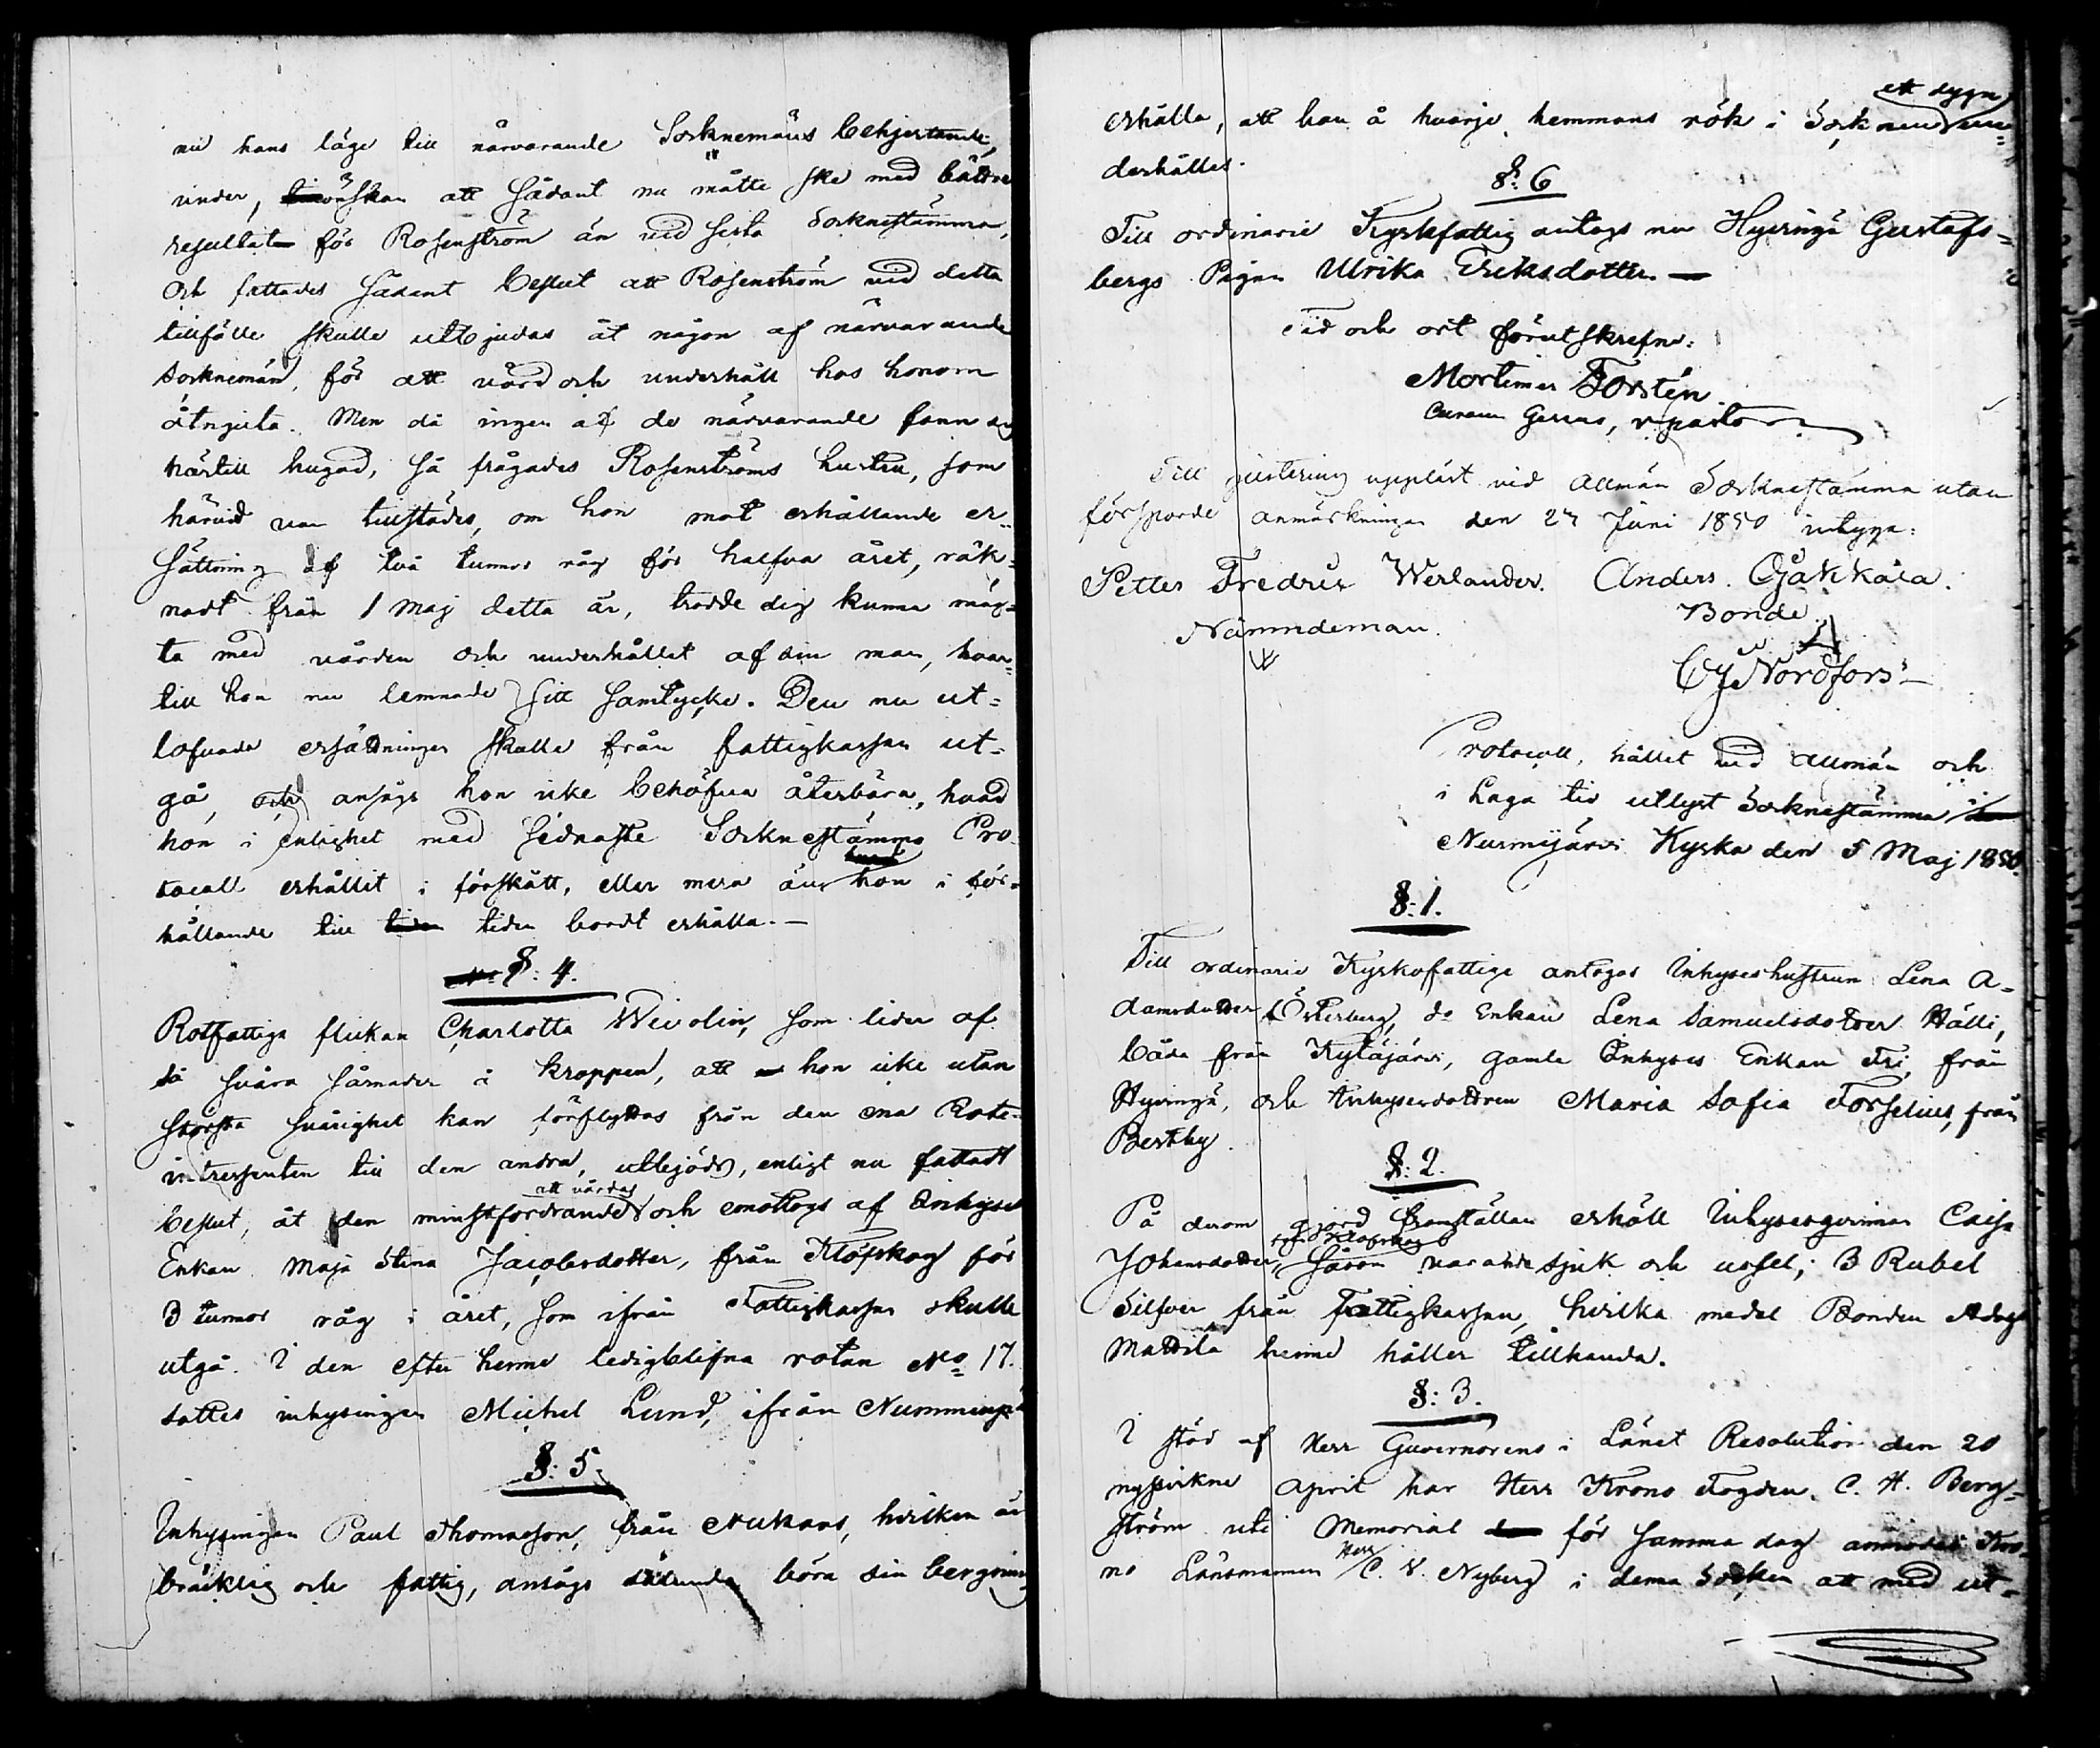 nu hans läge till närvarande Socknemäns behjertande,
under, önskan att sådant nu måtte ske med bättre
resultat för Rosenström än vid sista Socknestämma,
och fattades sådant beslut att Rosenström vid detta
tillfälle skulle utbjudas åt någon af närvarande
Socknemän, för att vård och underhåll hos honom
åtnjuta. Men då ingen af de närvarande fann sig
härtill hugad, så frågades Rosenströms hustru, som
härvid var tillstädes, om hon mot erhållande er-
sättning af två tunnor råg för halfva året, räk-
nadt från 1 Maj detta år, trodde sig kunna mäg-
ta med vården och underhållet af sin man, hvar-
till hon nu lemnade sitt samtycke. Den nu ut-
lofvade ersättningen skulle från fattigkassan ut-
gå, och ansågs hon icke behöfva återbära, hvad
hon i enlighet med sednaste Socknestämmo Pro-
tocoll erhållit i förskått, eller mera än hon i för-
hållande till tiden bordt erhålla. —
§: 4.
Rotfattiga flickan Charlotta Weivolin, som lider af
så svåra sårnader å kroppen, att hon icke utan
största svårighet kan förflyttas från den ena Rote-
intressenten till den andra, utbjöds, enligt nu fattadt
att vårdas
beslut, åt den minstfordrande och emottogs af Inhyses
Enkan Maja Stina Jacobsdotter, från Klöfskog för
3 tunnor råg i året, som ifrån Fattigkassan skulle
utgå. I den efter henne ledigblefna rotan No 17.
sattes inhysingen Michel Lund, ifrån Nummenpä
§: 5.
Inhysingen Paul Thomasson, från Nukars, hvilken är
bräcklig och fattig, ansågs sålunda böra sin bergning
ett dygn
erhålla, att han å hvarje hemmans rök i Socknen un-
derhålles.
§: 6
Till ordinarie Kyrkfattig antogs nu Hyvingä Gustafs-
bergs Pigan Ulrika Eriksdotter —
Tid och ort förutskrefne:
Mortimer Forstén
Curam Gerens, v pastor
Till justering uppläst vid Allmän Socknestämma utan
försporde anmärkningar den 24 Juni 1850 intyga:
Petter Fredric Werlander. Anders Ojakkala.
Nämndeman. Bonde
CJ Nordfors
Protocoll, hållet vid allmän och
i Laga tid utlyst Socknestämma i
Nurmijärvi Kyrka den 5 Maj 1850.
§: 1.
Till ordinarie Kyrkofattige antogos Inhyseshustrun Lena A-
damsdotter Österberg, do Enkan Lena Samuelsdotter Hälli,
båda från Kytäjärvi, gamla Inhyses Enkan Fri, från
Hyvingä, och Inhysesdottren Maria Sofia Forselius, från
Bertby.
§: 2.
På derom gjord framställan erhöll Inhysesqvinnan Caisa
Johansdotter, såsom varande sjuk och ussel, 3 Rubel
Silfver från Fattigkassan, hvilka medel Bonden Adolf
Mattila henne håller tillhanda.
§: 3.
I stöd af Herr Guvernörens i Länet Resolution den 20
nyssvikne April har Herr Krono Fogden C. H. Berg-
ström uti Memorial för samma dag anmodat Kro-
Herr
no Länsmannen C. V. Nyberg i denna Socken att med ut-